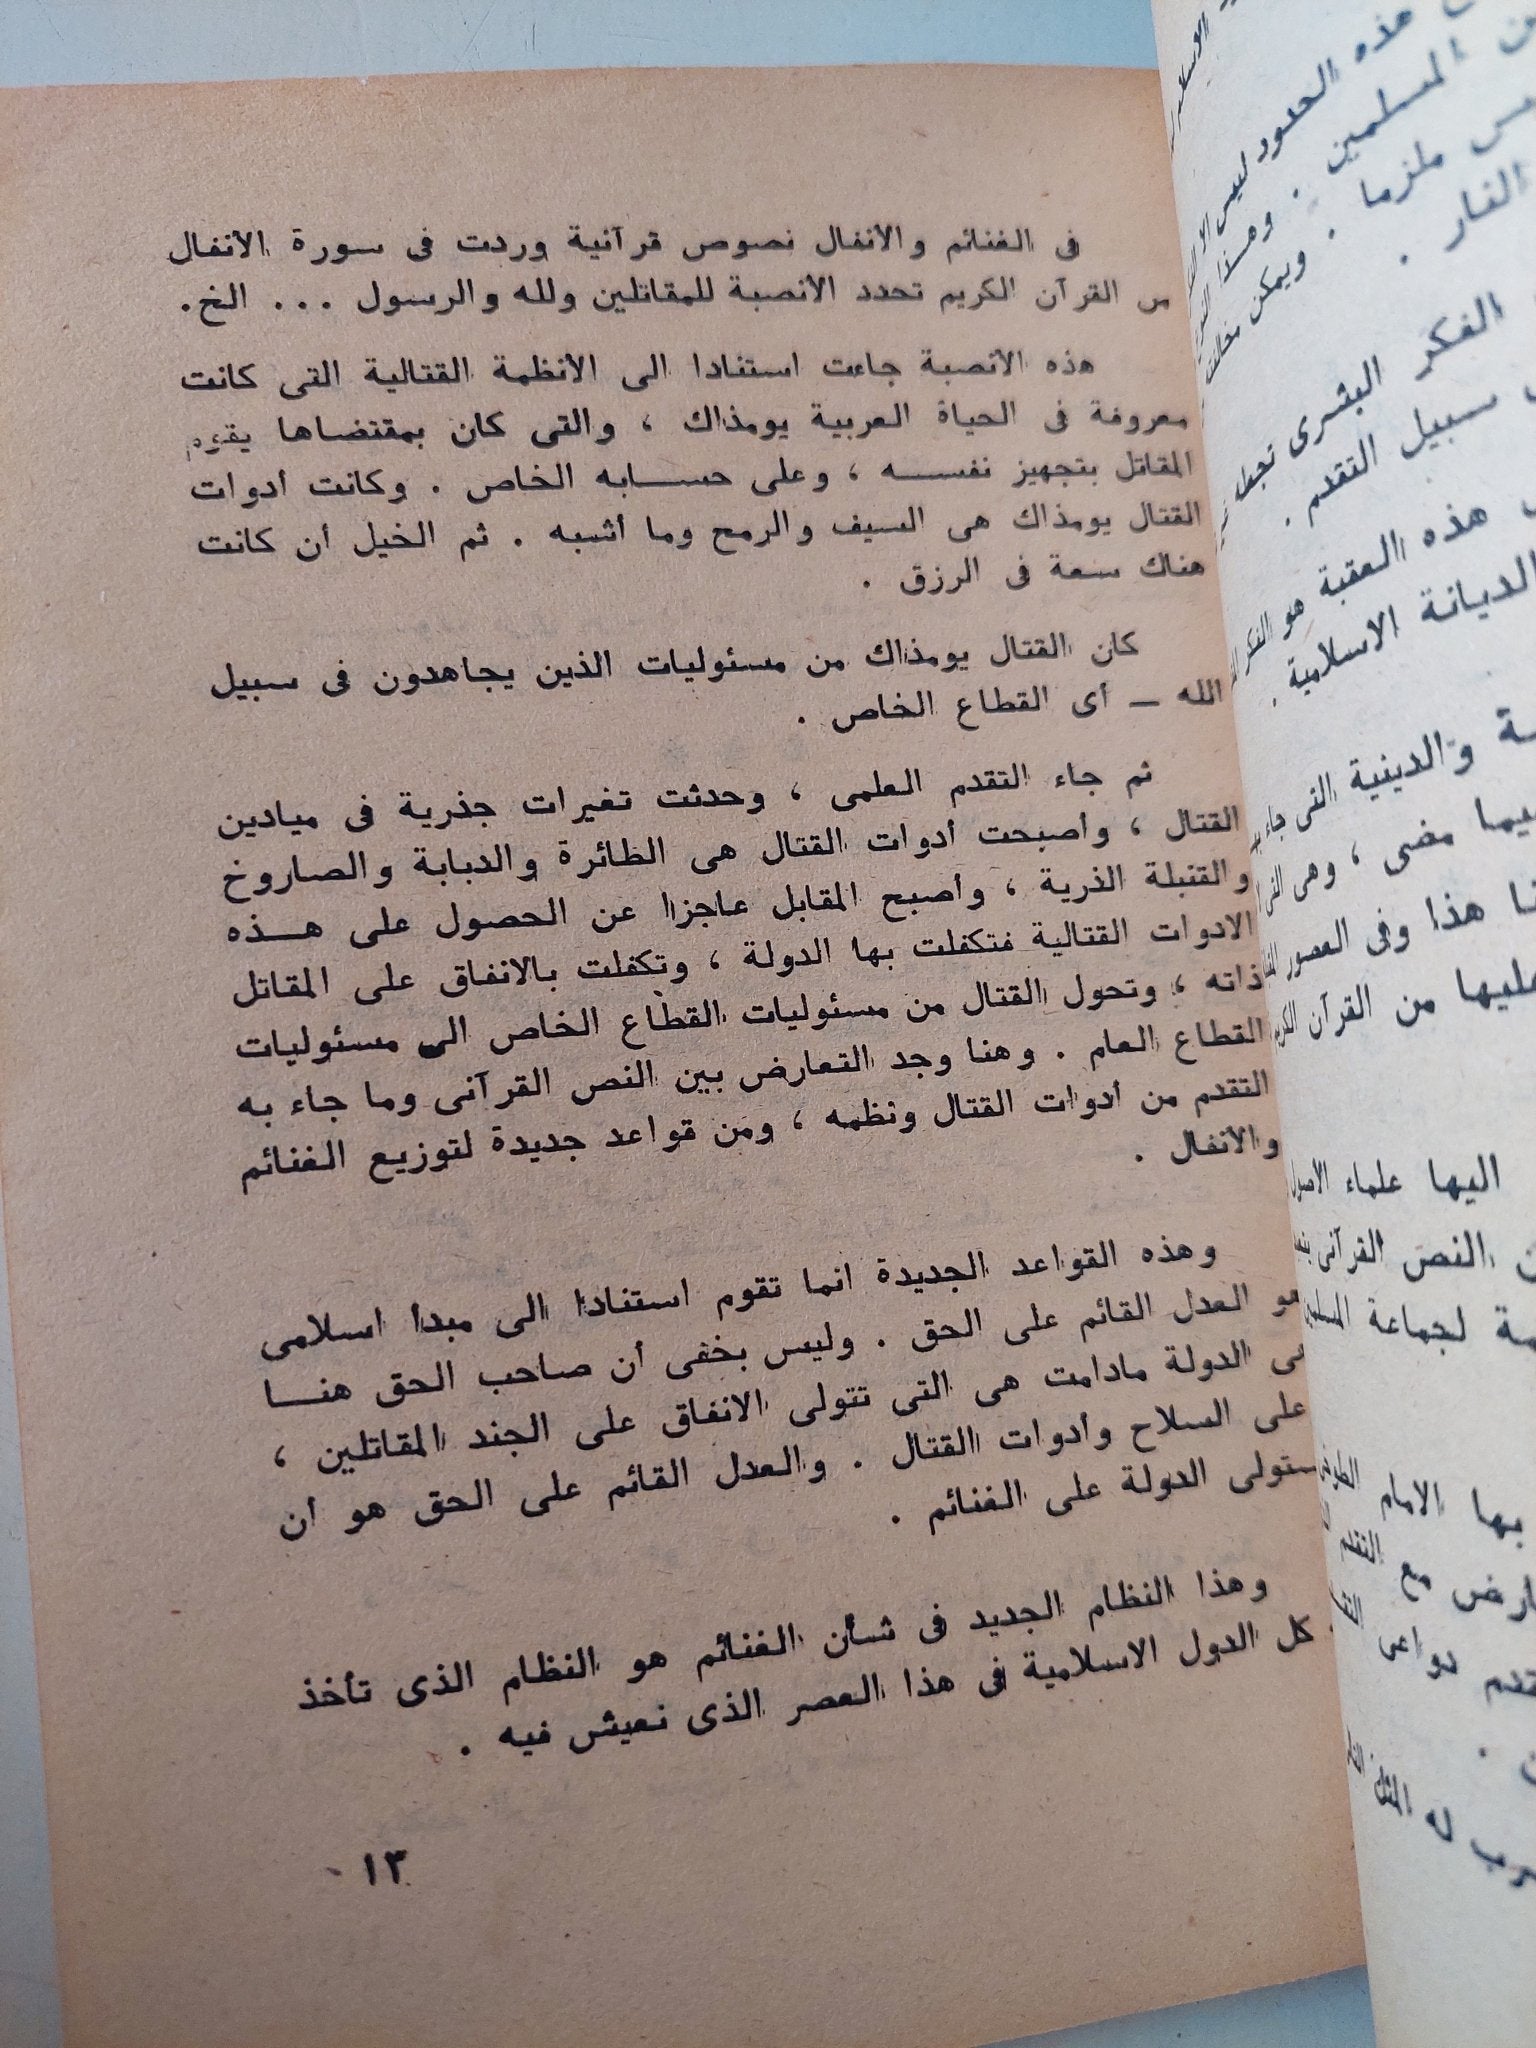 فى الغنائم والأنفال نصوص قرآنية وردت فى سورة الأنفال
من القرآن الكريم تحدد الأنصبة للمقاتلين ولله والرسول ... الخ.
هذه الأنصبة جاءت استنادا الى الأنظمة القتالية التى كانت
معروفة فى الحياة العربية يومذاك ، والتى كان بمقتضاها يقوم
المقاتل بتجهيز نفســـه ، وعلى حســـابه الخاص . وكانت أدوات
القتال يومذاك هى السيف والرمح وما أشبه . ثم الخيل أن كانت
هناك سعة فى الرزق .
كان القتال يومذاك من مسئوليات الذين يجاهدون فى سبيل
الله — أى القطاع الخاص .
ثم جاء التقدم العلمى ، وحدثت تغيرات جذرية فى ميادين
القتال ، وأصبحت أدوات القتال هى الطائرة والدبابة والصاروخ
والقنبلة الذرية ، وأصبح المقابل عاجزا عن الحصول على هـــذه
الادوات القتالية فتكفلت بها الدولة ، وتكفلت بالانفاق على المقاتل
ذاته ، وتحول القتال من مسئوليات القطاع الخاص الى مسئوليات
القطاع العام . وهنا وجد التعارض بين النص القرآنى وما جاء به
التقدم من أدوات القتال ونظمه ، ومن قواعد جديدة لتوزيع الغنائم
والأنفال .
وهذه القواعد الجديدة انما تقوم استنادا الى مبدأ اسلامى
هو العدل القائم على الحق . وليس بخفى أن صاحب الحق هنـــا
هى الدولة مادامت هى التى تتولى الانفاق على الجند المقاتلين ،
على السلاح وأدوات القتال . والعدل القائم على الحق هو أن
ستولى الدولة على الغنائم .
وهذا النظام الجديد فى شأن الغنائم هو النظام الذى تأخذ
كل الدول الاسلامية فى هذا العصر الذى نعيش فيه .
١٣
هذه الحدود ليس الا
المسلمين . وهذا
ملزما . ويمكن
النار .
الفكر البشرى تجعله
سبيل التقدم .
هذه العقبة هو الفكر
الديانة الاسلامية .
والدينية التى جاء
مضى ، وهى
هذا وفى العصور
من القرآن الكريم
اليها علماء الأصول
النص القرآنى
لجماعة المسلمين
بها الامام
مع التقدم
دواعى
له المثل